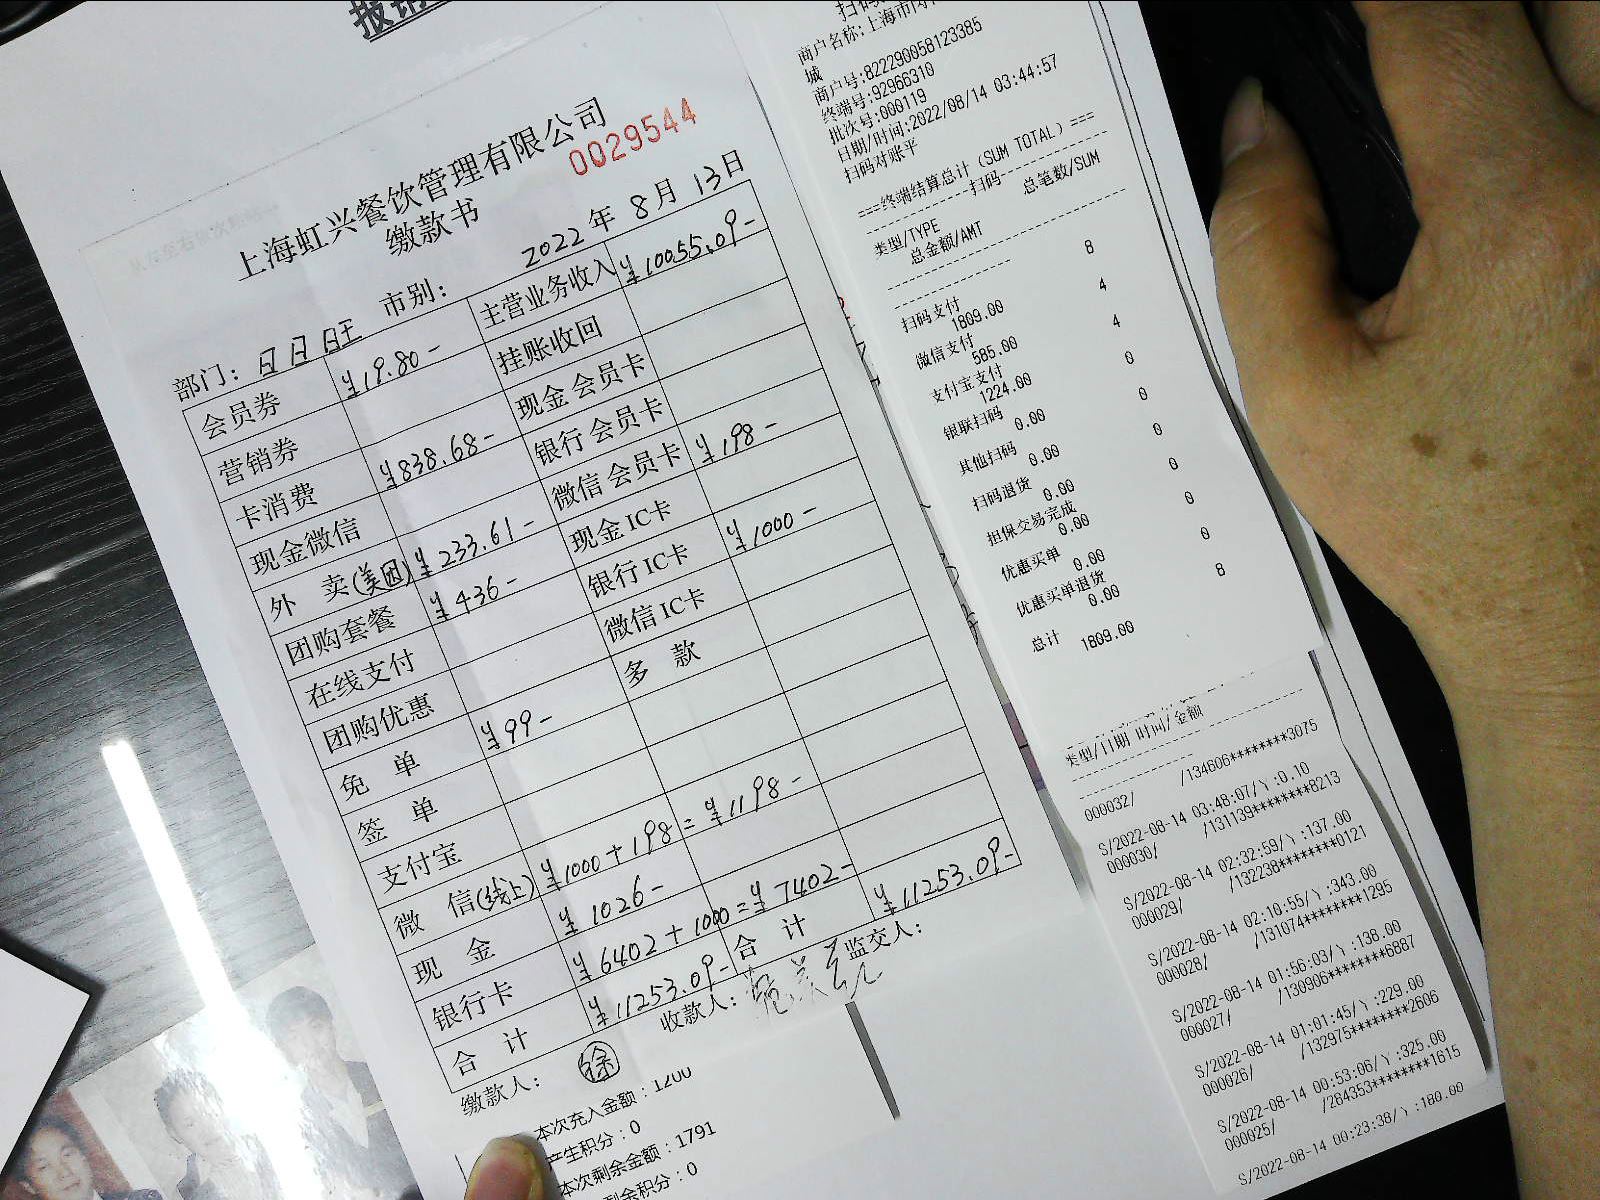 上海虹兴餐饮管理有限公司
缴款书
0029544
2022 年 8 月 13 日
部门: 日日旺 市别:
会员券 ¥19.80- 主营业务收入 ¥10055.09-
营销券 挂账收回
卡消费 ¥838.68- 现金会员卡
现金微信 银行会员卡
外 卖(美团) ¥233.61- 微信会员卡 ¥198-
团购套餐 ¥436- 现金IC卡
在线支付 银行IC卡 ¥1000-
团购优惠 微信IC卡
免 单 ¥99- 多 款
签 单
支付宝
微 信(线上) ¥1000+198=¥1198-
现 金 ¥1026-
银行卡 ¥6402+1000=¥7402-
合 计 ¥11253.09- 合 计 ¥11253.09-
缴款人: 徐 收款人: 监交人:
本次充入金额:1200
产生积分:0
本次剩余金额:1791
剩余积分:0
商户名称:上海市
城
商户号:822290058123385
终端号:92966310
批次号:000119
日期/时间:2022/08/14 03:44:57
扫码对账平
===终端结算总计(SUM TOTAL)===
扫码
类型/TYPE 总笔数/SUM
总金额/AMT
扫码支付 8
1809.00
微信支付 4
585.00
支付宝支付 4
1224.00
银联扫码 0
0.00
其他扫码 0
0.00
扫码退货 0
0.00
担保交易完成 0
0.00
优惠买单 0
0.00
优惠买单退货 0
0.00
总计 8
1809.00
类型/日期 时间/金额
000032/ /134606********3075
S/2022-08-14 03:48:07/\:0.10
000030/ /131139********8213
S/2022-08-14 02:32:59/\:137.00
000029/ /132238********0121
S/2022-08-14 02:10:55/\:343.00
000028/ /131074********1295
S/2022-08-14 01:56:03/\:138.00
000027/ /130906********6887
S/2022-08-14 01:01:45/\:229.00
000026/ /132975********2606
S/2022-08-14 00:53:06/\:325.00
000025/ /284353********1615
S/2022-08-14 00:23:38/\:180.00